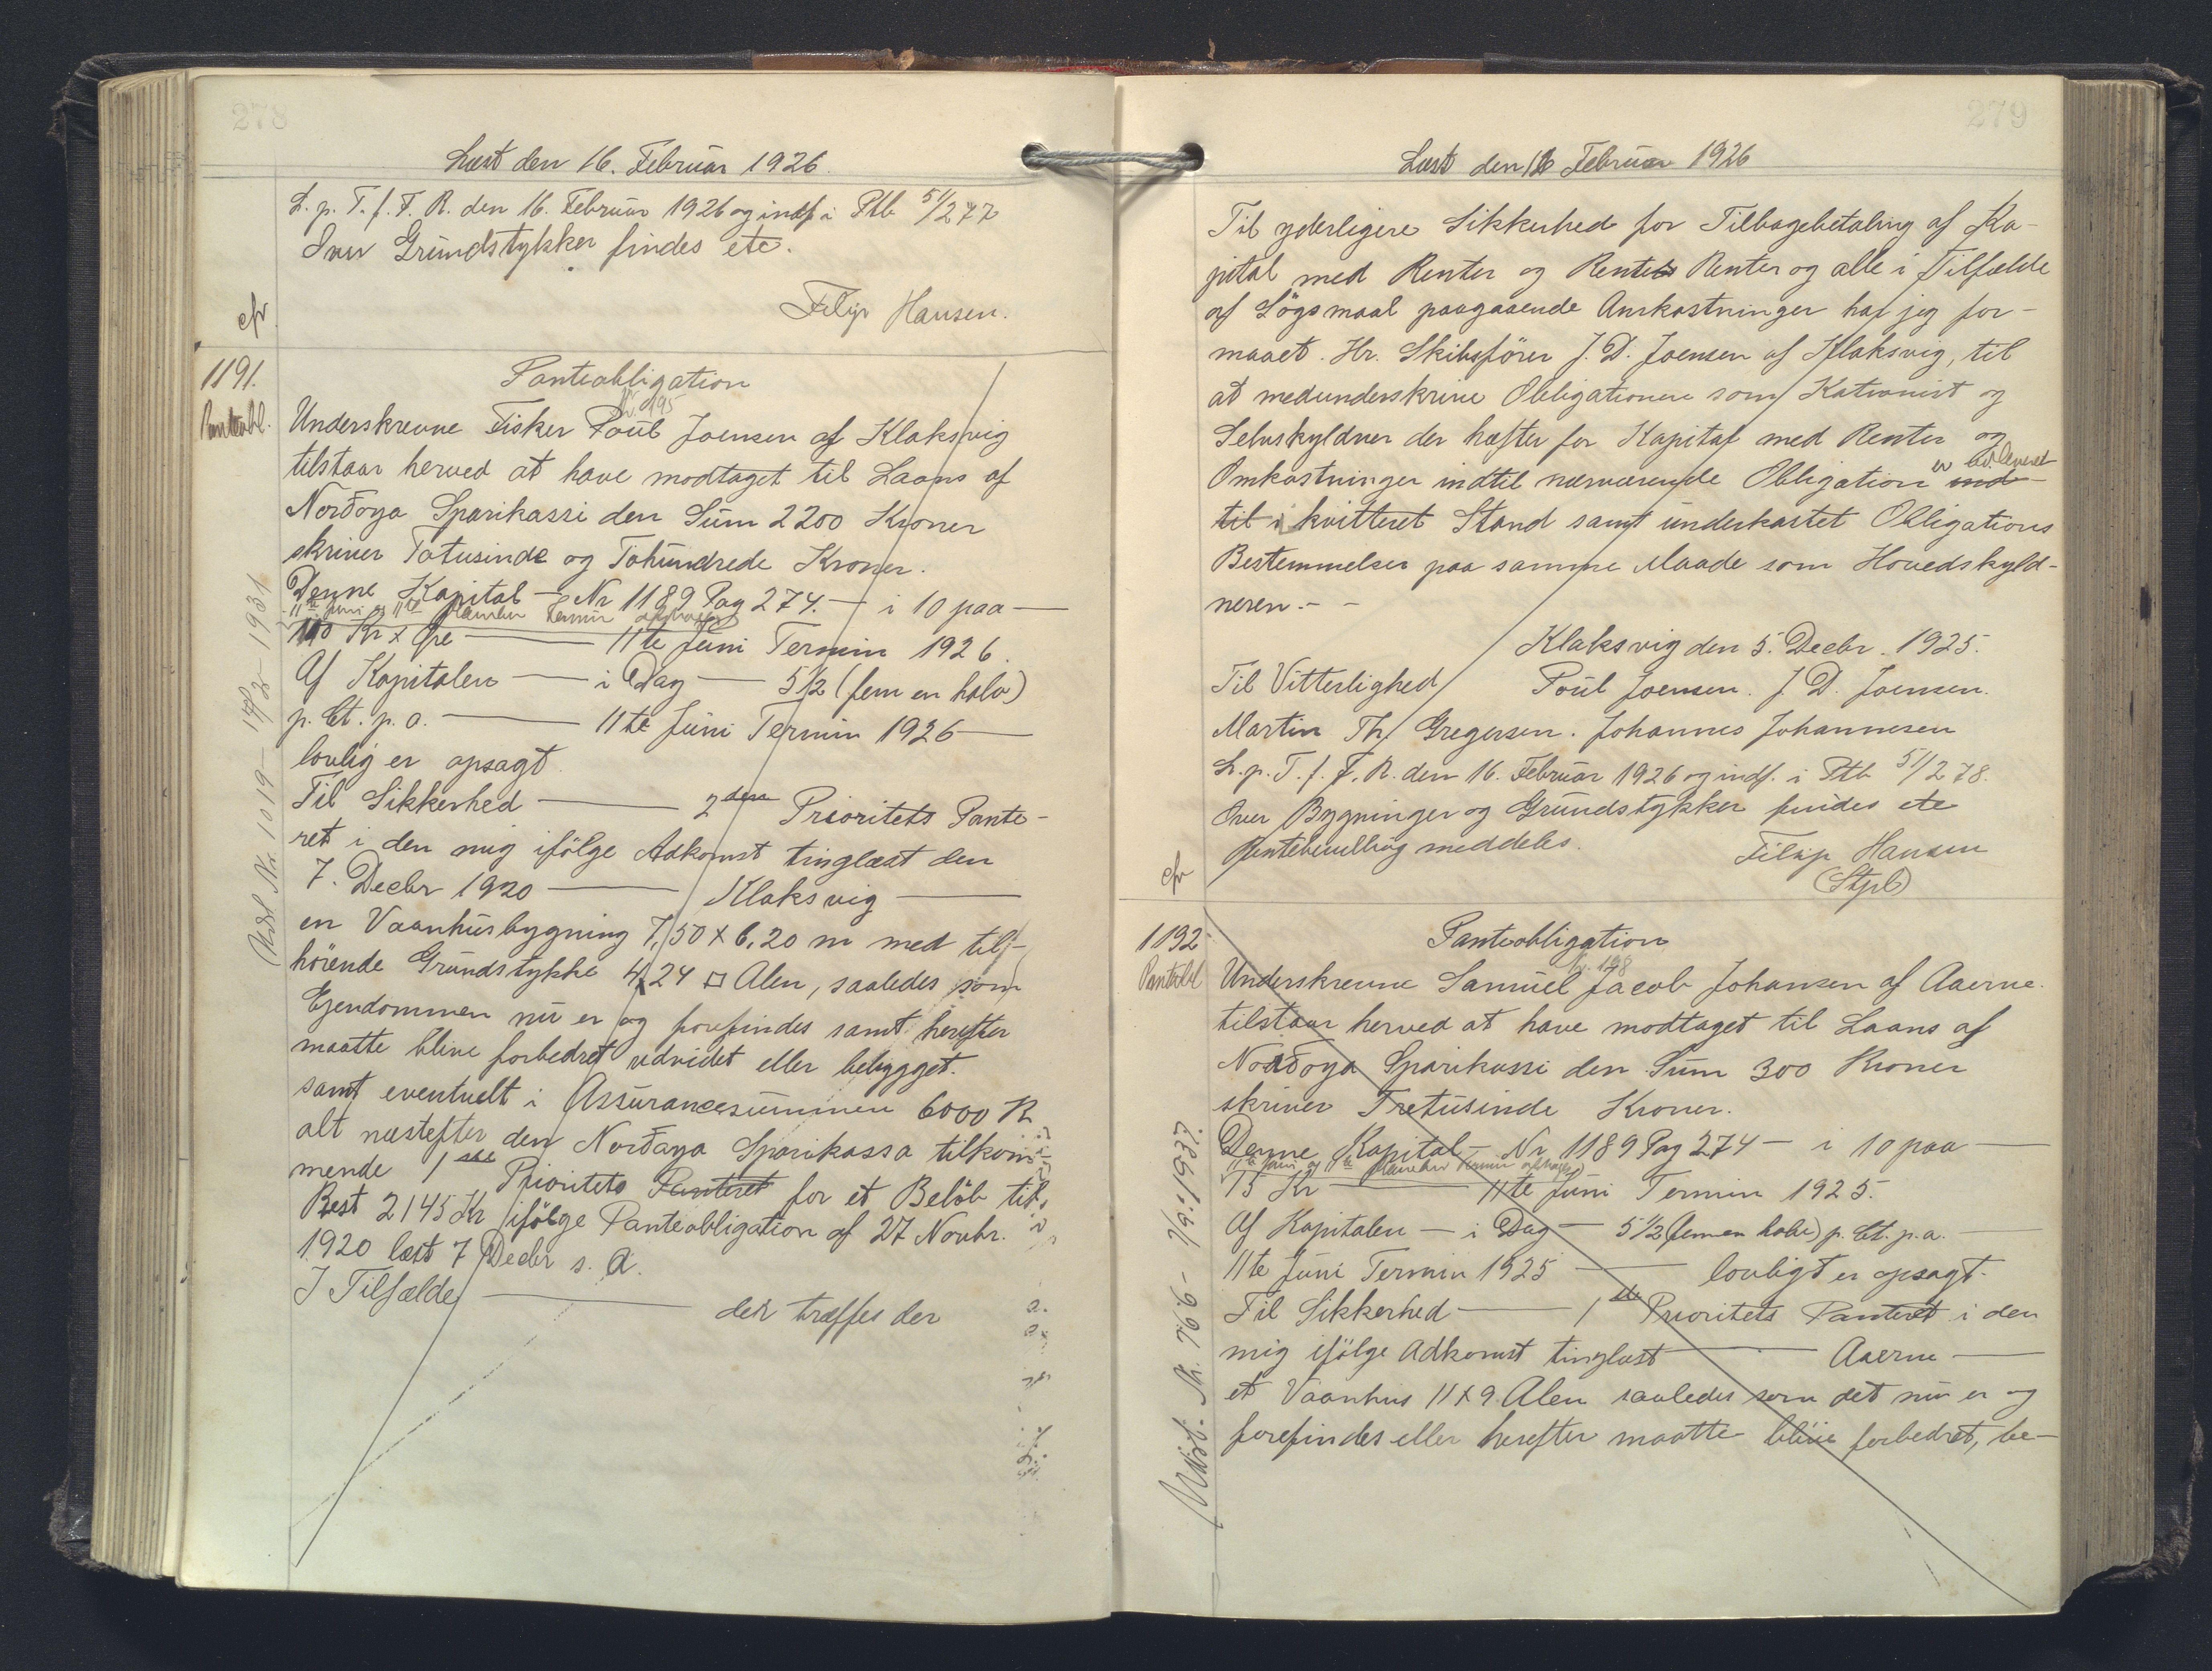 278
Læst den 16. Februar 1926.
L. p. T. f. F. R. den 16. Februar 1926 og indf i Ptb 51/277
Over Grundstykker findes etc.
Filip Hansen.
cfr.
1191.
Panteobl.
Panteobligation
Nr. 195
Underskrevne Fisker Poul Joensen af Klaksvig
tilstaar herved at have modtaget til Laans af
Norðoya Sparikassi den Sum 2200 Kroner
skriver Totusinde og Tohundrede Kroner.
Denne Kapital — Nr 1189 Pag 274. — i 10 paa —
11te Juni og 11te Termin
110 Kr x Øre — 11te Juni Termin 1926.
Af Kapitalen — i Dag — 5½ (fem en halv)
p. Ct. p. a. — 11te Juni Termin 1926 —
lovlig er opsagt.
Til Sikkerhed — 2den Prioritets Pante-
ret i den mig ifølge Adkomst tinglæst den
7. Decbr 1920 — Klaksvig —
en Vaanhusbygning 7,50 x 6,20 m med til-
hørende Grundstykke 424 □ Alen, saaledes som
Ejendommen nu er og forefindes samt herefter
maatte blive forbedret udvidet eller bebygget.
samt eventuelt i Assurancesummen 6000 Kr
alt næstefter den Norðoya Sparikassa tilkom-
mende 1ste Prioritets Panteret for et Beløb til
Rest 2145 Kr ifølge Panteobligation af 27 Novbr.
1920 læst 7 Decbr s. A.
I Tilfælde — der træffes der
Udsl. Nr. 1019 — 1931
279
Læst den 16 Februar 1926
Til yderligere Sikkerhed for Tilbagebetaling af Ka-
pital med Renter og Renters Renter og alle i Tilfælde
af Søgsmaal paagaaende Omkostninger har jeg for-
maaet. Hr. Skibsfører J. D. Joensen af Klaksvig, til
at medunderskrive Obligationen som Kationist og
Selvskyldner der hæfter for Kapital med Renter og
Omkostninger indtil nærværende Obligation er udleveret ind-
til i kvitteret Stand samt underkastet Obligations
Bestemmelser paa samme Maade som Hovedskyld-
neren. - -
Klaksvig den 5. Decbr. 1925.
Til Vitterlighed Poul Joensen. J. D. Joensen.
Martin Th. Gregersen. Johannes Johannesen
L. p. T. f. F. R. den 16. Februar 1926 og indf. i Ptb 51/278.
Over Bygninger og Grundstykker findes etc
Rentebevilling meddeles.
Filip Hansen
(Stpl)
cfr
1192
Panteobl
Panteobligation
Nr. 198
Underskrevne Samuel Jacob Johansen af Aaerne.
tilstaar herved at have modtaget til Laans af
Norðoya Sparikassi den Sum 300 Kroner
skriver Tretusinde Kroner.
Denne Kapital — Nr 1189 Pag 274 — i 10 paa —
11te Juni og 11te Termin
15 Kr — 11te Juni Termin 1925.
Af Kapitalen — i Dag — 5½ (fem en halv) p. Ct. p. a. —
11te Juni Termin 1925 — lovligt er opsagt.
Til Sikkerhed — 1ste Prioritets Panteret i den
mig ifølge Adkomst tinglæst — Aaerne —
et Vaanhus 11 x 9 Alen saaledes som det nu er og
forefindes eller herefter maatte blive forbedret, be-
Udsl. Nr. 766 - 1937.